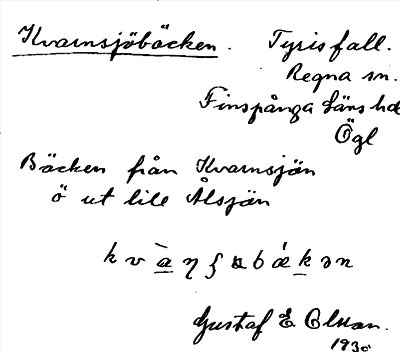 Kvarnsjöbäcken. Tyrisfall.
Regna sn.
Finspånga läns hd
Ögl
Bäcken från Kvarnsjön
ö ut till Ålsjön
Gustaf E Olsson.
1930